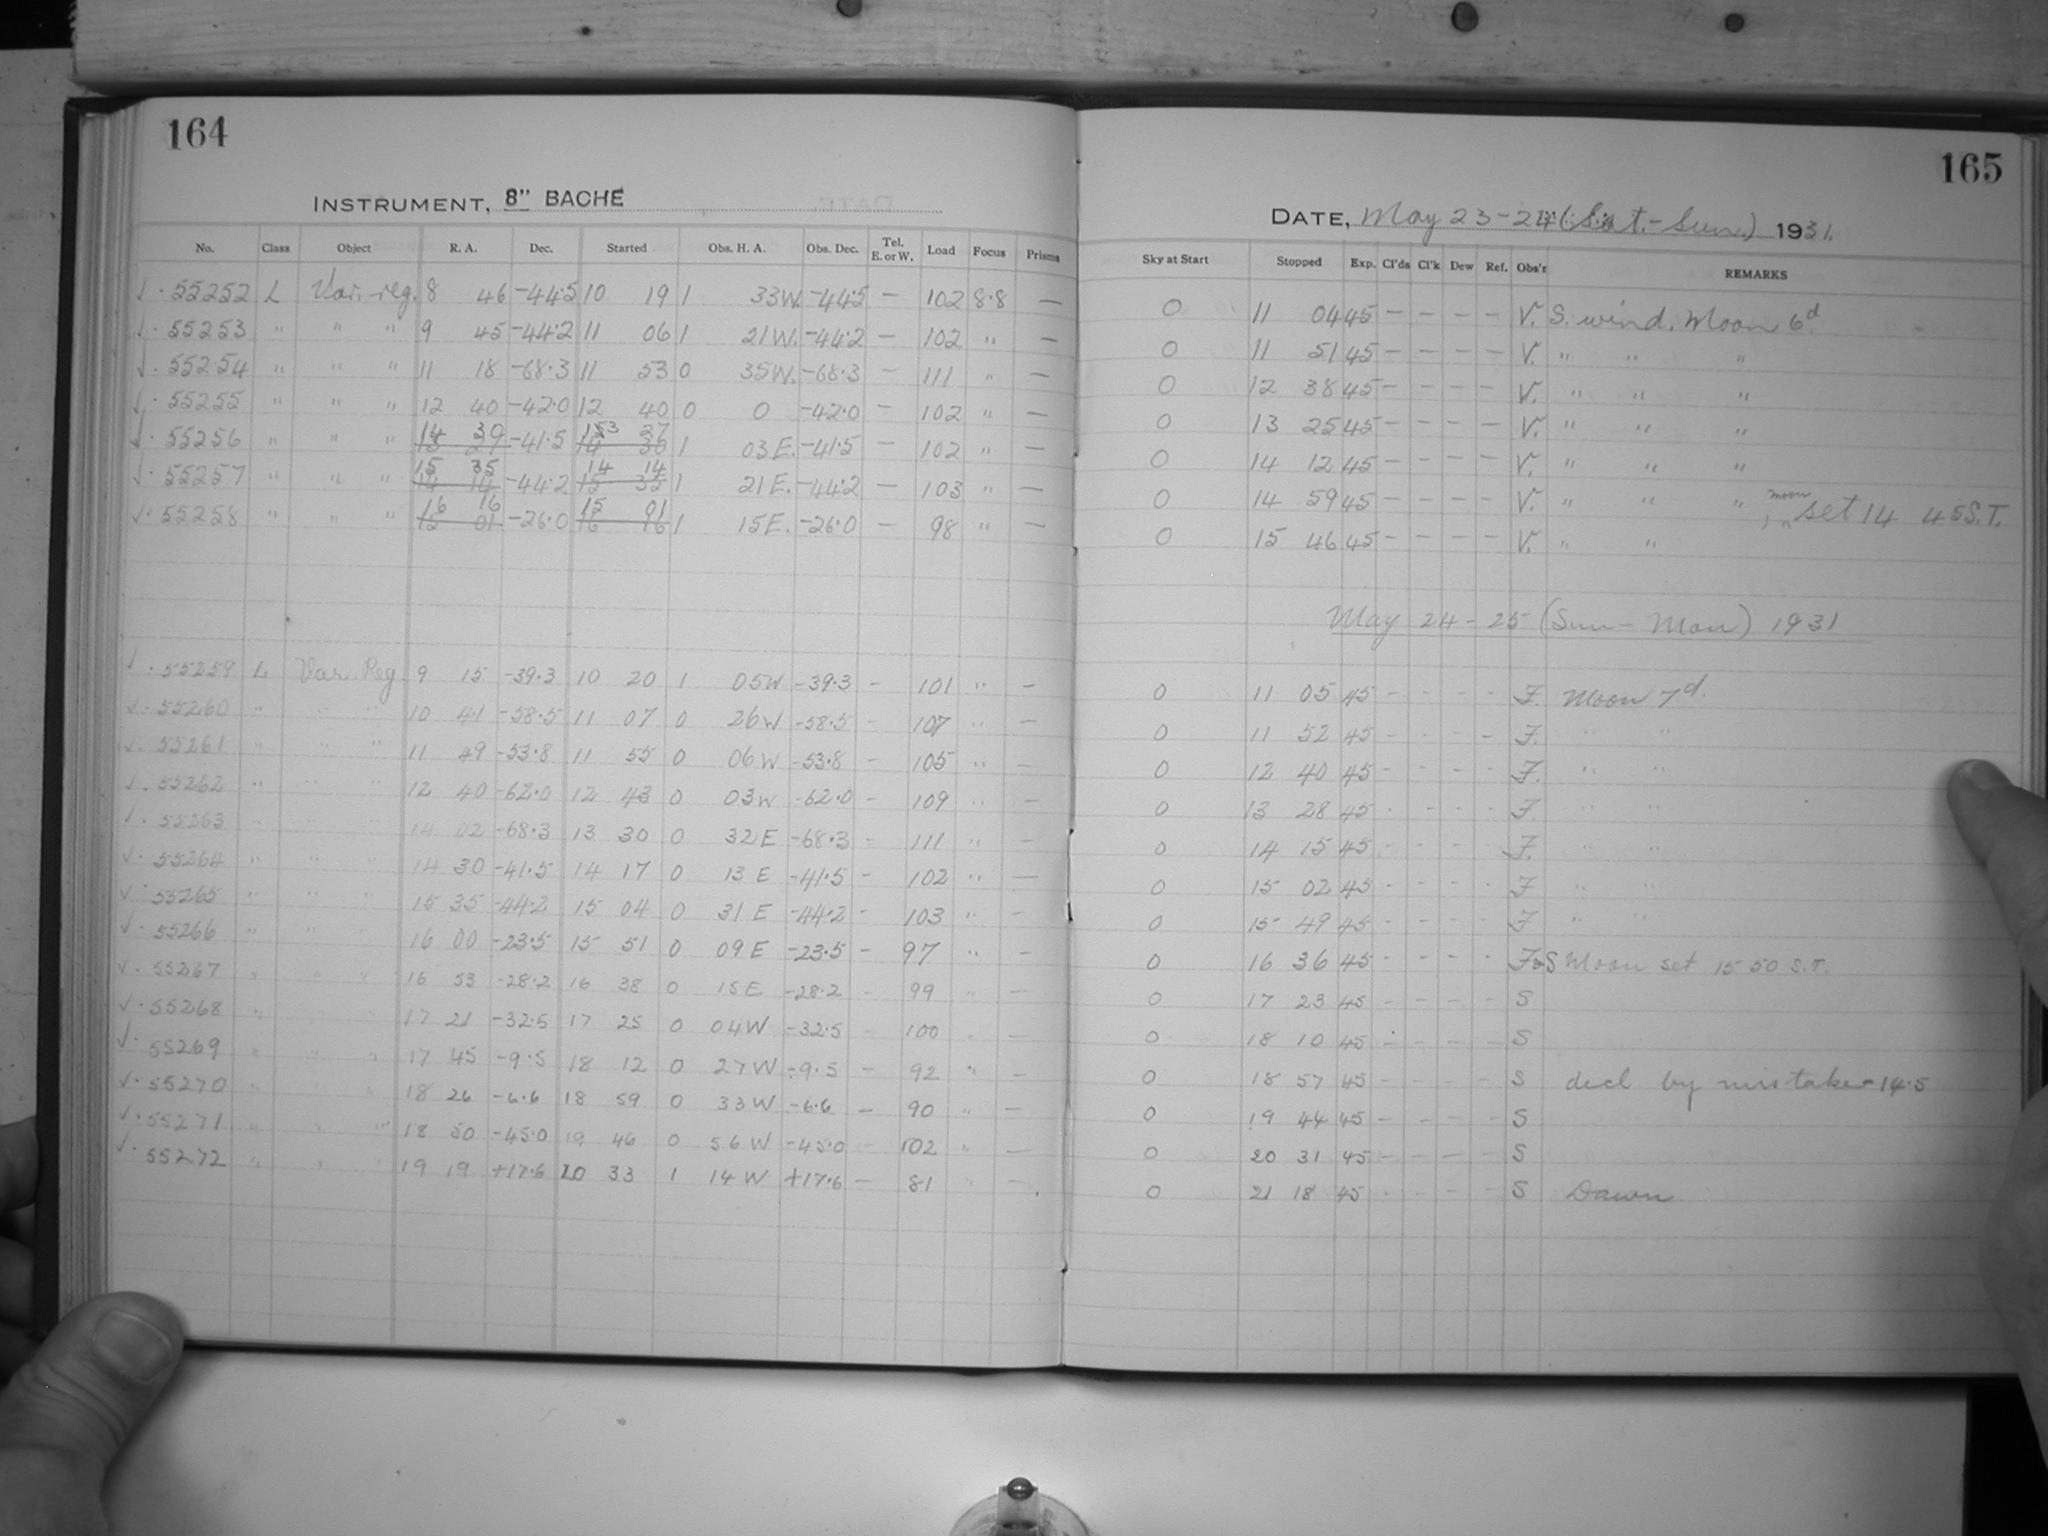 164
INSTRUMENT, 8" BACHE
No. Class Object R. A. Dec. Started Obs. H. A. Obs. Dec. Tel. E. or W. Load Focus Prisms
√ · 55252 L Var. reg. 8 46 -44.5 10 19 1 33W. -44.5 — 102 8.8 —
√ · 55253 " " " 9 45 -44.2 11 06 1 21W. -44.2 — 102 " —
√ · 55254 " " " 11 18 -68.3 11 53 0 35W. -68.3 — 111 " —
√ · 55255 " " " 12 40 -42.0 12 40 0 0 -42.0 — 102 " —
√ · 55256 " " " 14 30 -41.5 13 27 1 03E. -41.5 — 102 " —
√ · 55257 " " " 15 35 -44.2 14 14 1 21E. -44.2 — 103 " —
√ · 55258 " " " 16 16 -26.0 15 01 1 15E. -26.0 — 98 " —
√ · 55259 L Var. Reg. 9 15 -39.3 10 20 1 05W -39.3 - 101 " -
√ · 55260 " " " 10 41 -58.5 11 07 0 26W -58.5 - 107 " -
√ · 55261 " " " 11 49 -53.8 11 55 0 06W -53.8 - 105 " -
√ · 55262 " " " 12 40 -62.0 12 43 0 03W -62.0 - 109 " -
√ · 55263 " " " 14 02 -68.3 13 30 0 32E -68.3 - 111 " -
√ · 55264 " " " 14 30 -41.5 14 17 0 13E -41.5 - 102 " -
√ · 55265 " " " 15 35 -44.2 15 04 0 31E -44.2 - 103 " -
√ · 55266 " " " 16 00 -23.5 15 51 0 09E -23.5 - 97 " -
√ · 55267 " " " 16 53 -28.2 16 38 0 15E -28.2 - 99 " -
√ · 55268 " " " 17 21 -32.5 17 25 0 04W -32.5 - 100 " -
√ · 55269 " " " 17 45 -9.5 18 12 0 27W -9.5 - 92 " -
√ · 55270 " " " 18 26 -6.6 18 59 0 33W -6.6 - 90 " -
√ · 55271 " " " 18 50 -45.0 19 46 0 56W -45.0 - 102 " -
√ · 55272 " " " 19 19 +17.6 20 33 1 14W +17.6 - 81 " -
165
DATE, May 23-24 (Sat.-Sun.) 1931.
Sky at Start Stopped Exp. Cl'ds Cl'k Dew Ref. Obs'r REMARKS
0 11 04 45 - - - - V. S. wind. Moon 6d
0 11 51 45 - - - - V. " " "
0 12 38 45 - - - - V. " " "
0 13 25 45 - - - - V. " " "
0 14 12 45 - - - - V. " " "
0 14 59 45 - - - - V. " " " moon set 14 45 S.T.
0 15 46 45 - - - - V. " "
May 24-25 (Sun-Mon) 1931
0 11 05 45 - - - - F. Moon 7d.
0 11 52 45 - - - - F. " "
0 12 40 45 - - - - F. " "
0 13 28 45 - - - - F. " "
0 14 15 45 - - - - F. " "
0 15 02 45 - - - - F " "
0 15 49 45 - - - - F " "
0 16 36 45 - - - - F&S Moon set 15 50 S.T.
0 17 23 45 - - - - S
0 18 10 45 - - - - S
0 18 57 45 - - - - S decl by mistake -14.5
0 19 44 45 - - - - S
0 20 31 45 - - - - S
0 21 18 45 - - - - S Dawn